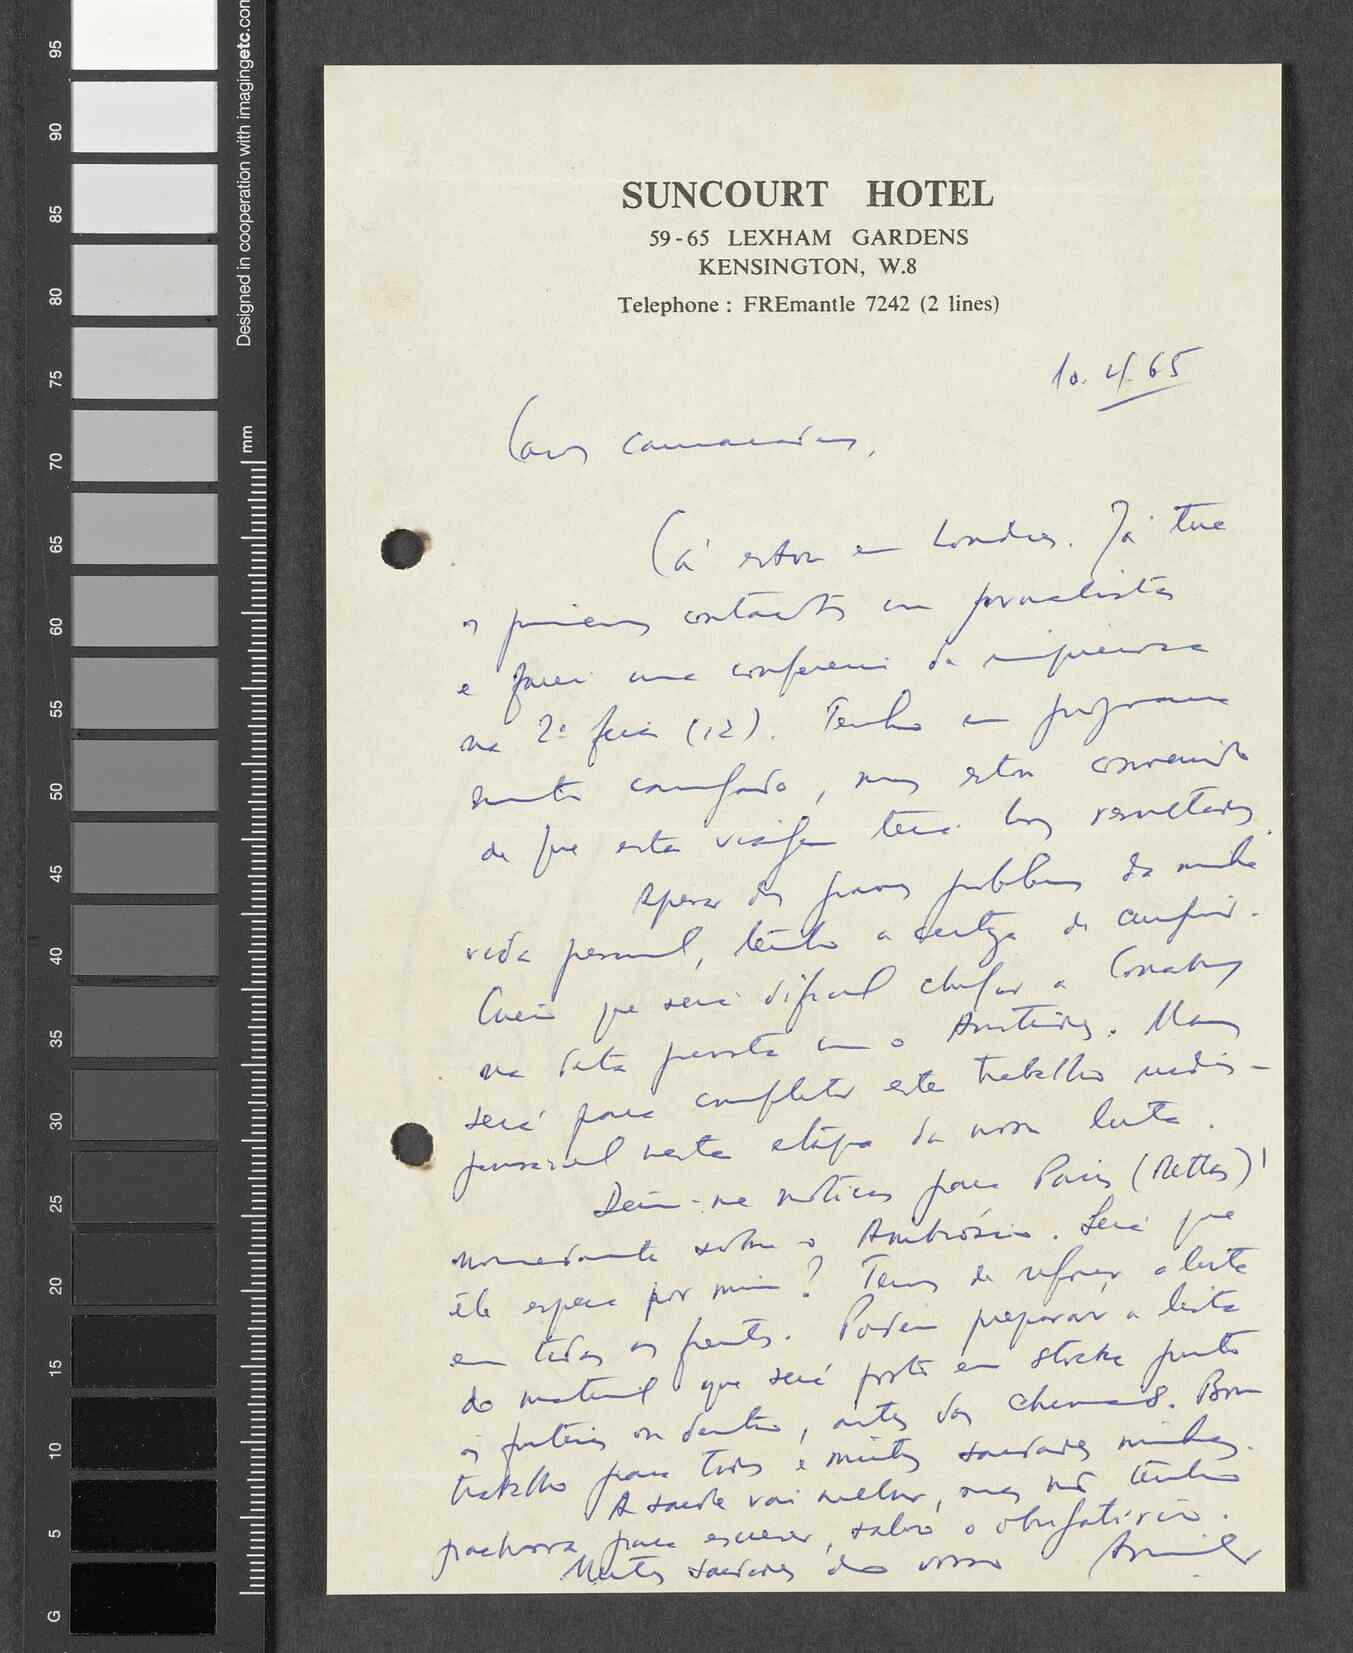 SUNCOURT HOTEL
59-65 LEXHAM GARDENS
KENSINGTON, W.8
Telephone : FREmantle 7242 (2 lines)
10.4.65
Caros camaradas,
Cá estou em Londres. Já tive
os primeiros contactos com jornalistas
e farei uma conferencia de imprensa
na 2ª feira (12). Tenho um programa
muito carregado, mas estou convencido
de que esta viagem terá bons resultados.
Apesar dos graves problemas da minha
vida pessoal, tenho a certeza de cumprir.
Creio que será difícil chegar a Conakry
na data prevista com o Aristides. Mas
será para completar este trabalho indis-
pensável nesta etapa da nossa luta.
Dêem-me notícias para Paris (Mettas)!
nomeadamente sobre o Ambrósio. Será que
êle espera por mim? Temos de reforçar a luta
em todas as frentes. Podem preparar a lista
do material que será posto em stocks junto
às fronteiras ou dentro, antes das chuvas. Bom
trabalho para todos e muitas saudades minhas.
A saúde vai melhor, mas não tenho
pachorra para escrever, salvo o obrigatório.
Muitas saudades do vosso Amilcar
Designed in cooperation with imagingetc.com
mm
95
90
85
80
75
70
65
60
55
50
45
40
35
30
25
20
15
10
5
G